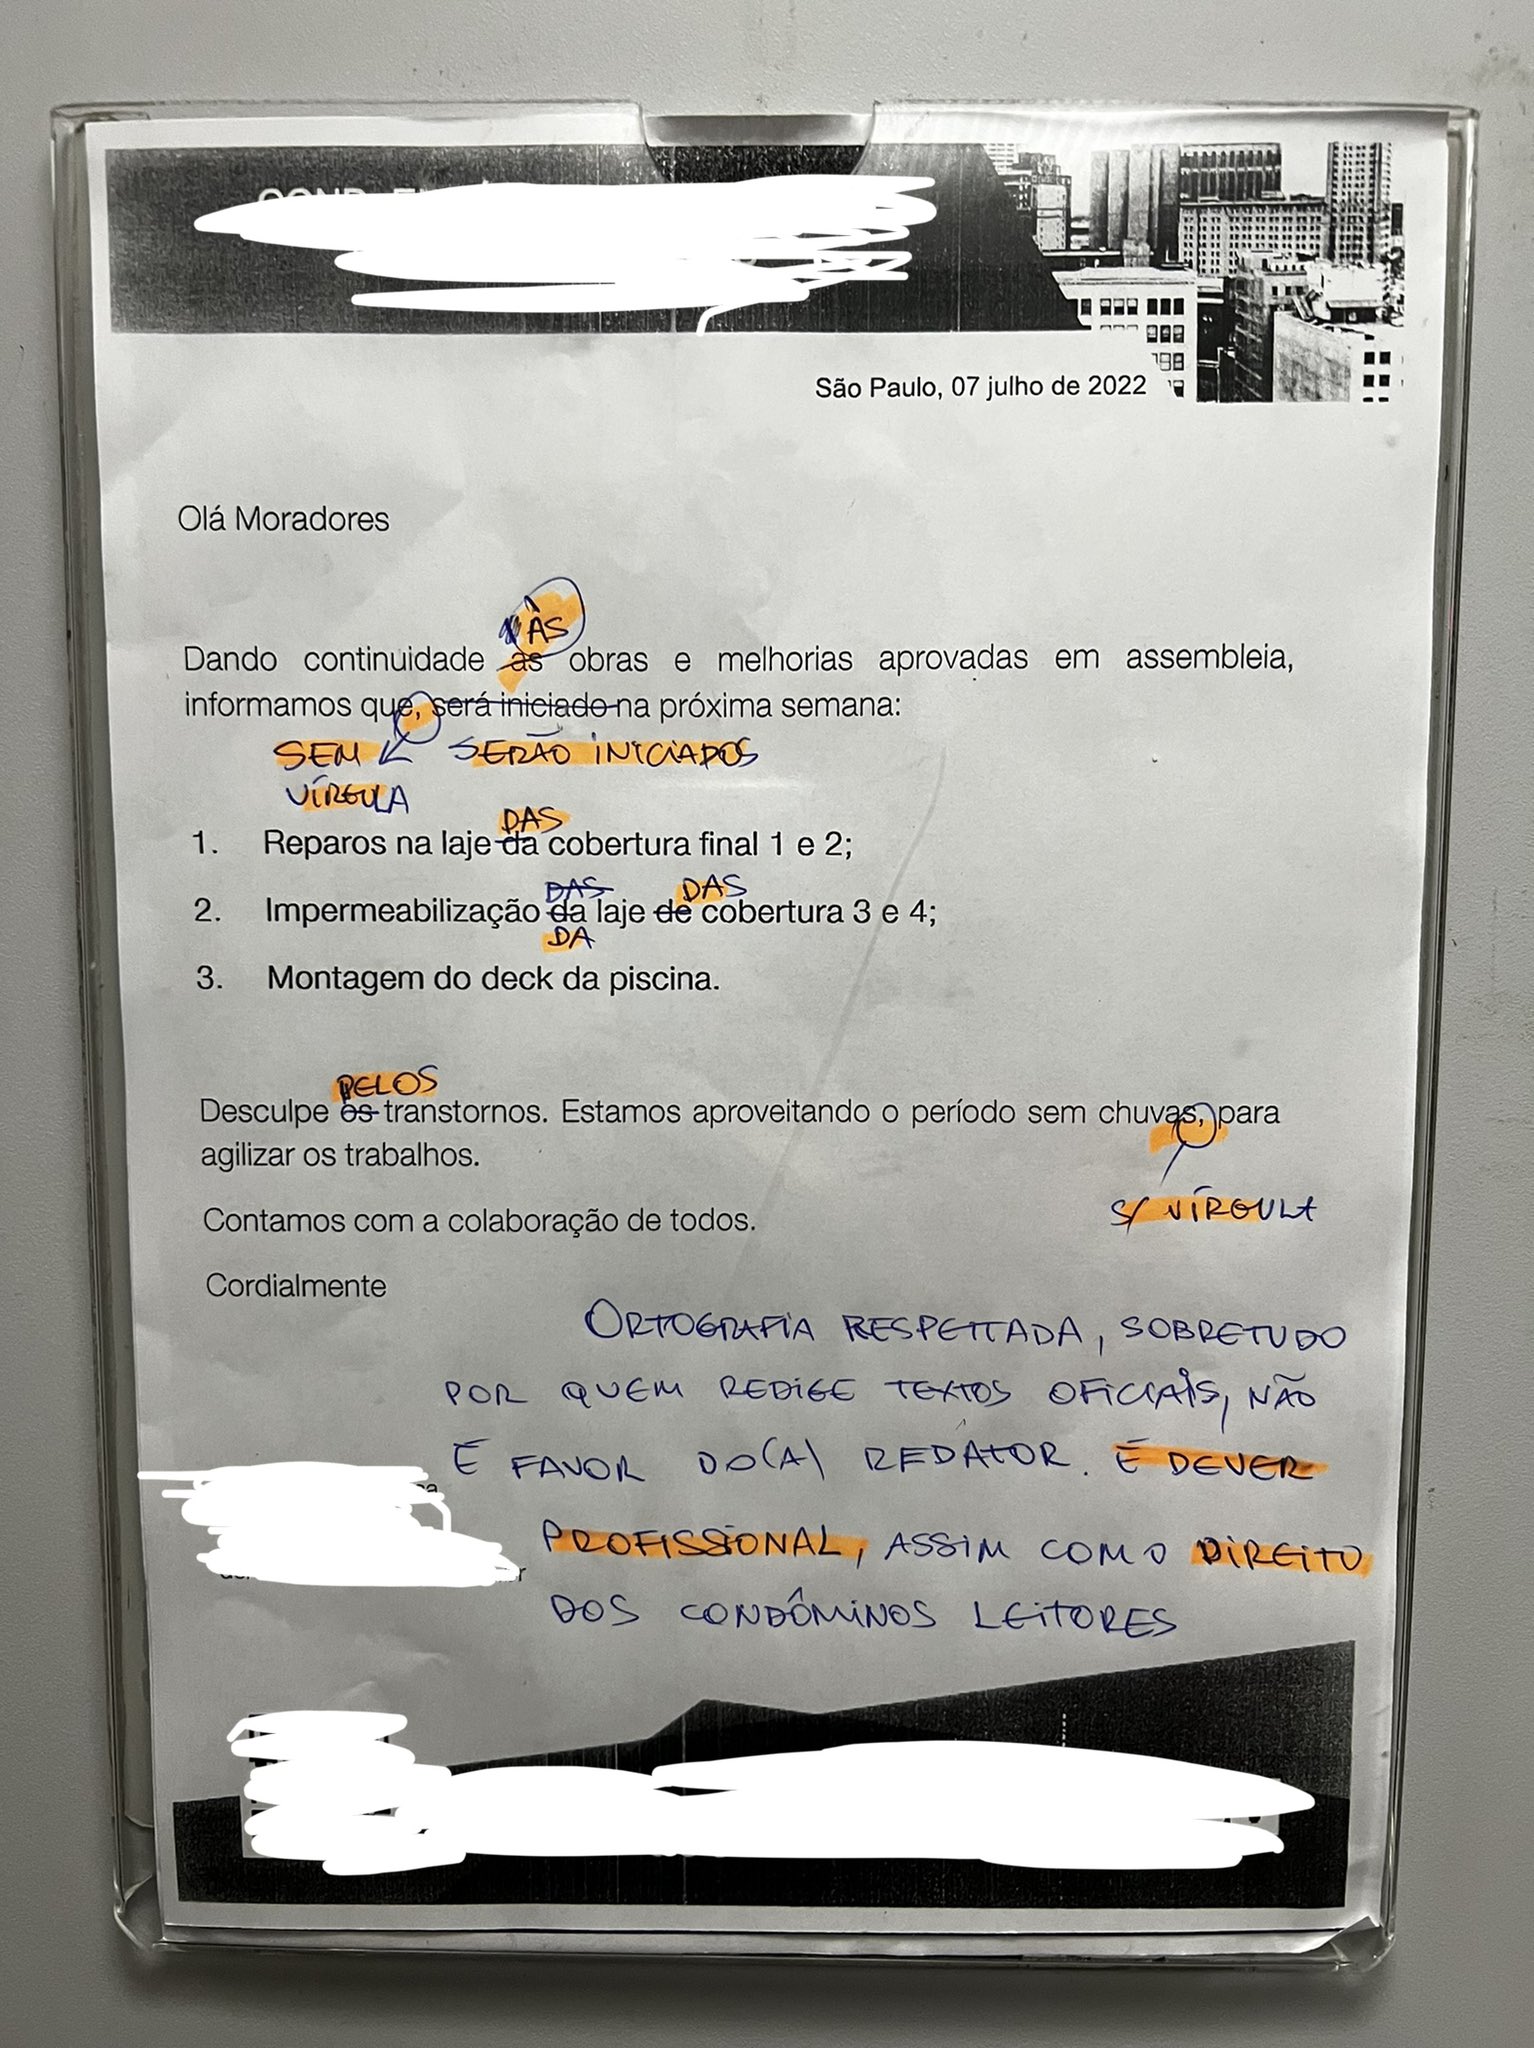 São Paulo, 07 julho de 2022
Olá Moradores
ÀS
Dando continuidade as obras e melhorias aprovadas em assembleia,
informamos que, será iniciado na próxima semana:
SEM SERÃO INICIADOS
VÍRGULA
DAS
1. Reparos na laje da cobertura final 1 e 2;
DAS DAS
2. Impermeabilização da laje de cobertura 3 e 4;
DA
3. Montagem do deck da piscina.
PELOS
Desculpe os transtornos. Estamos aproveitando o período sem chuvas, para
agilizar os trabalhos.
S/ VÍRGULA
Contamos com a colaboração de todos.
Cordialmente
ORTOGRAFIA RESPEITADA, SOBRETUDO
POR QUEM REDIGE TEXTOS OFICIAIS, NÃO
É FAVOR DO(A) REDATOR. É DEVER
PROFISSIONAL, ASSIM COMO DIREITO
DOS CONDÔMINOS LEITORES